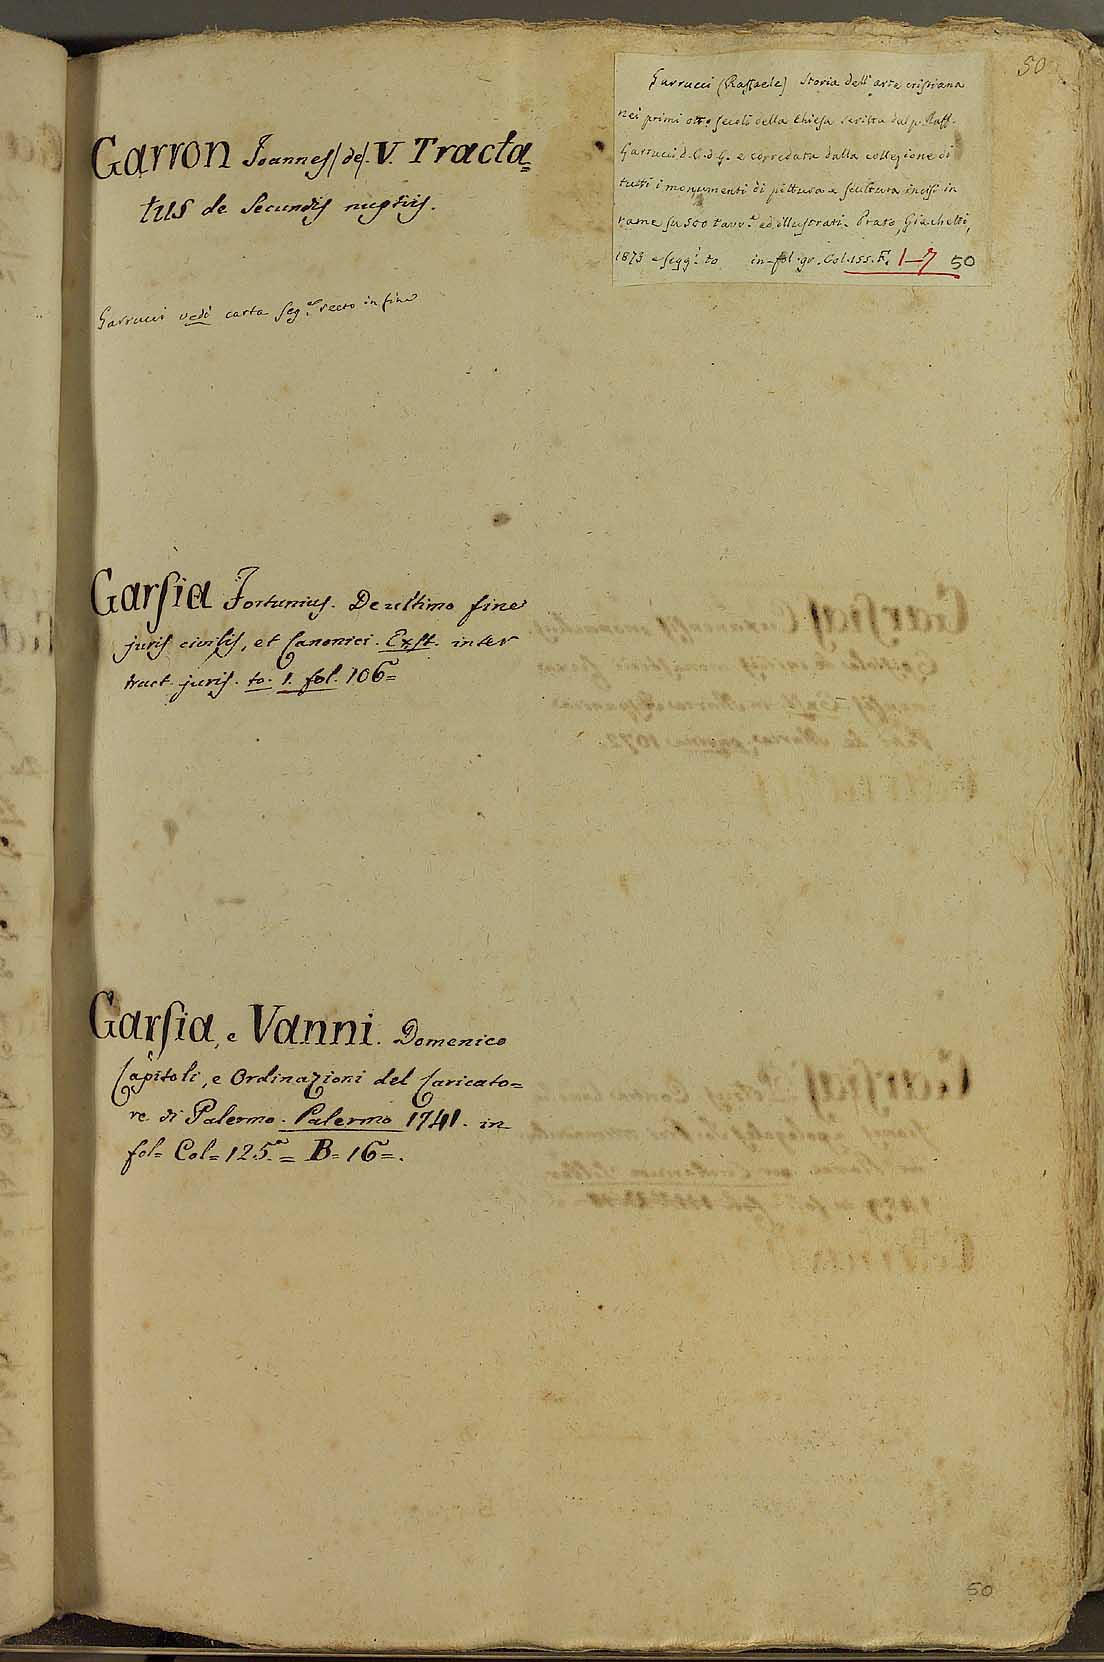 50
Garron Joannes (de). V. Tracta=
tus de Secundis nuptiis.
Garrucci vedi carta seg.e recto in fine
Garrucci (Raffaele) Storia dell'arte cristiana
nei primi otto secoli della Chiesa scritta dal p. Raff.
Garrucci d. C. d. G. e corredata dalla collezione di
tutti i monumenti di pittura e scultura incisi in
rame su 500 tavv.e ed illustrati. Prato, Giachetti,
1873 e segg.i to in-fol. gr. Col. 155. F. 1-7 50
Garsia Fortunius. De ultimo fine
juris civilis, et Canonici. Exst. inter
tract. juris. to. 1. fol. 106=
Garsia, e Vanni. Domenico
Capitoli, e Ordinazioni del Caricato=
re di Palermo. Palermo 1741. in
fol= Col=125.a= B=16=.
50